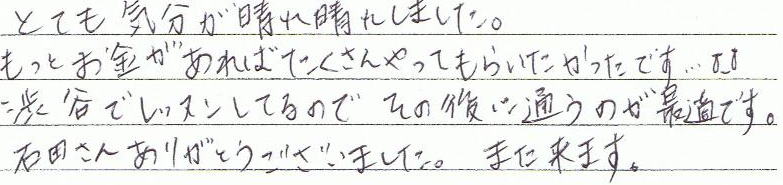 とても気分が晴れ晴れしました。
もっとお金があればたくさんやってもらいたかったです…
渋谷でレッスンしてるので その後に通うのが最適です。
石田さんありがとうございました。 また来ます。